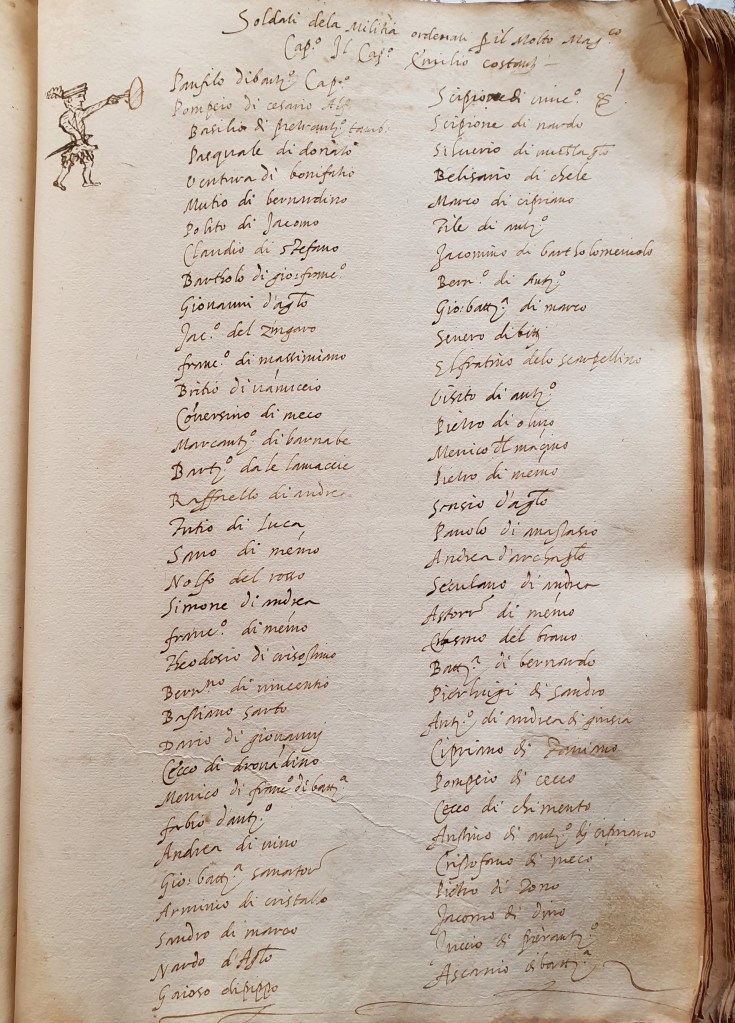 Soldati dela Militia ordenati p il Molto Mag.co
Cap.o Il Cap.o Emilio costant
Panfilo di batt.a Cap.o
Pompeio di cesario
Basilio di pietrant.o
Pasquale di donato
Ventura di bonifatio
Mutio di bernardino
Polito di Jacomo
Claudio di stefano
Bartholo di gio: franc.o
Giovanni d'aglo
Jac.o del zingaro
franc.o di massimiano
Britio di vannuccio
Coversino di meco
Marcant.o di barnabe
Bart.o da le lamaccie
Raffaello di andrea
Tutio di Luca
Savo di memo
Nolfo del rosso
Simone di andrea
franc.o di memo
Theodosio di crisostimo
Bern.no di vincentio
Bastiano sarto
Dario di giovannj
Cecco di
Menico di franc.o di batt.a
fabio d'ant.o
Andrea di vivo
Gio: batt.a
Arminio di cristallo
Sandro di marco
Nardo d'Aglo
Gaioso di pippo
Scipione di
Scipione di nardo
Silverio di
Belisario di chele
Marco di cipriano
Tile di ant.o
Jacomino di bartholomeiolo
Bern.o di Ant.o
Gio: batt.a di marco
Severo di
El fratino delo scarpellino
Visito di ant.o
Pietro di
Menico del magno
Pietro di memo
Sensio d'aglo
Pavolo di anastasio
Andrea d'archaglo
Seculano di andrea
Astorre di memo
Cosmo del bravo
Batt.a di bernardo
Pierluigi di Sandro
Ant.o di andrea di giusia
Cipriano di
Pompeio di cecco
Cecco di chimento
Ansino di ant.o di cipriano
Cristofano di meco
Pietro di Tono
Jacomo di dino
Puccio di pierant.o
Ascanio di batt.a